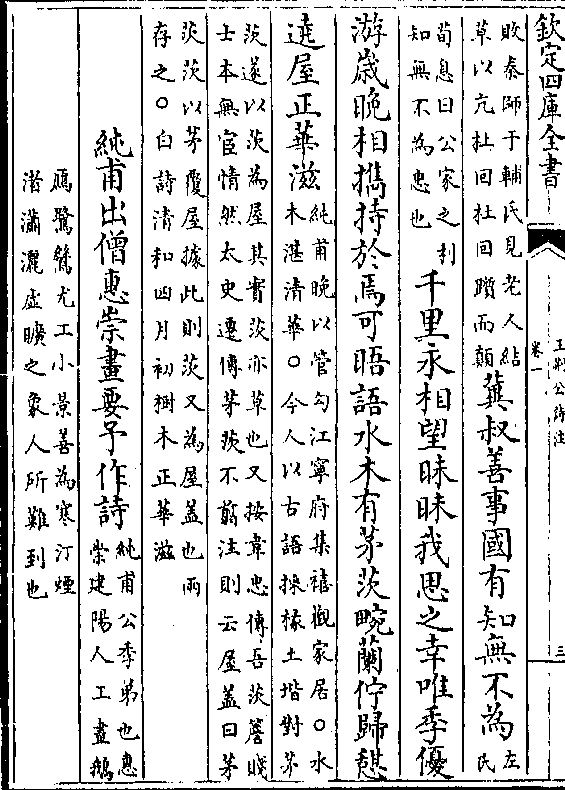 欽定四庫全書
王荆公詩注
卷一
三
敗秦師于輔氏見老人結
草以亢杜回杜回躓而顛
龔叔善事國有知無不為
左氏
荀息曰公家之利
知無不為忠也
千里永相望昧昧我思之幸唯季優
游歲晚相攜持於焉可晤語水木有茅茨畹蘭佇歸憩
遶屋正華滋
純甫晚以管勾江寧府集禧觀家居○水
木湛清華○今人以古語採椽土堦對茅
茨遂以茨為屋其實茨亦草也又按韋忠傳吾茨簷賤
士本無宦情然太史遷傳茅茨不翦注則云屋蓋曰茅
茨茨以茅覆屋據此則茨又為屋蓋也兩
存之○白詩清和四月初樹木正華滋
純甫出僧惠崇畫要予作詩
純甫公季弟也惠
崇建陽人工畫鵝
鴈鷺鷥尤工小景善為寒汀煙
渚瀟灑虛曠之象人所難到也